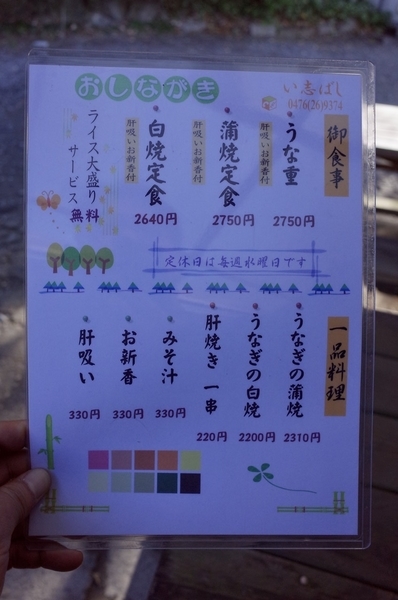 おしながき
い志ばし
0476(26)9374
御食事
うな重
肝吸いお新香付
2750円
蒲焼定食
肝吸いお新香付
2750円
白焼定食
肝吸いお新香付
2640円
ライス大盛り
サービス無料
定休日は毎週水曜日です
一品料理
うなぎの蒲焼
2310円
うなぎの白焼
2200円
肝焼き 一串
220円
みそ汁
330円
お新香
330円
肝吸い
330円